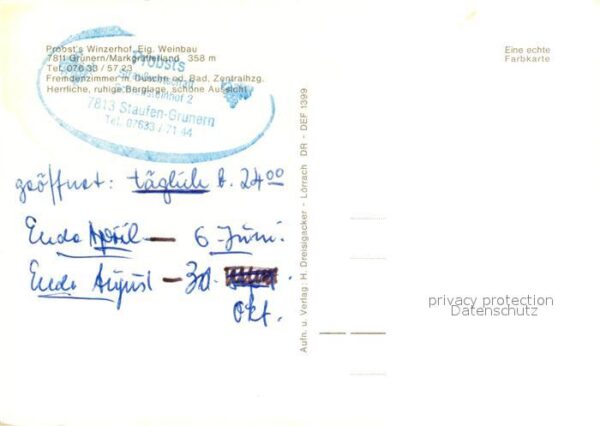 Probst's Winzerhof, Eig. Weinbau
7811 Grunern/Markgräflerland 358 m
Tel. 076 33 / 57 23
Fremdenzimmer m. Dusche od. Bad, Zentralhzg.
Herrliche, ruhige Berglage, schöne Aussicht
Probsts
7813 Staufen-Grunern
Tel. 07633 / 71 44
Eine echte
Farbkarte
geöffnet: täglich b. 24 00
Ende April — 6 Juni.
Ende August — 30.
Okt.
Aufn. u. Verlag: H. Dreisigacker - Lörrach DR - DEF 1399
privacy protection
Datenschutz